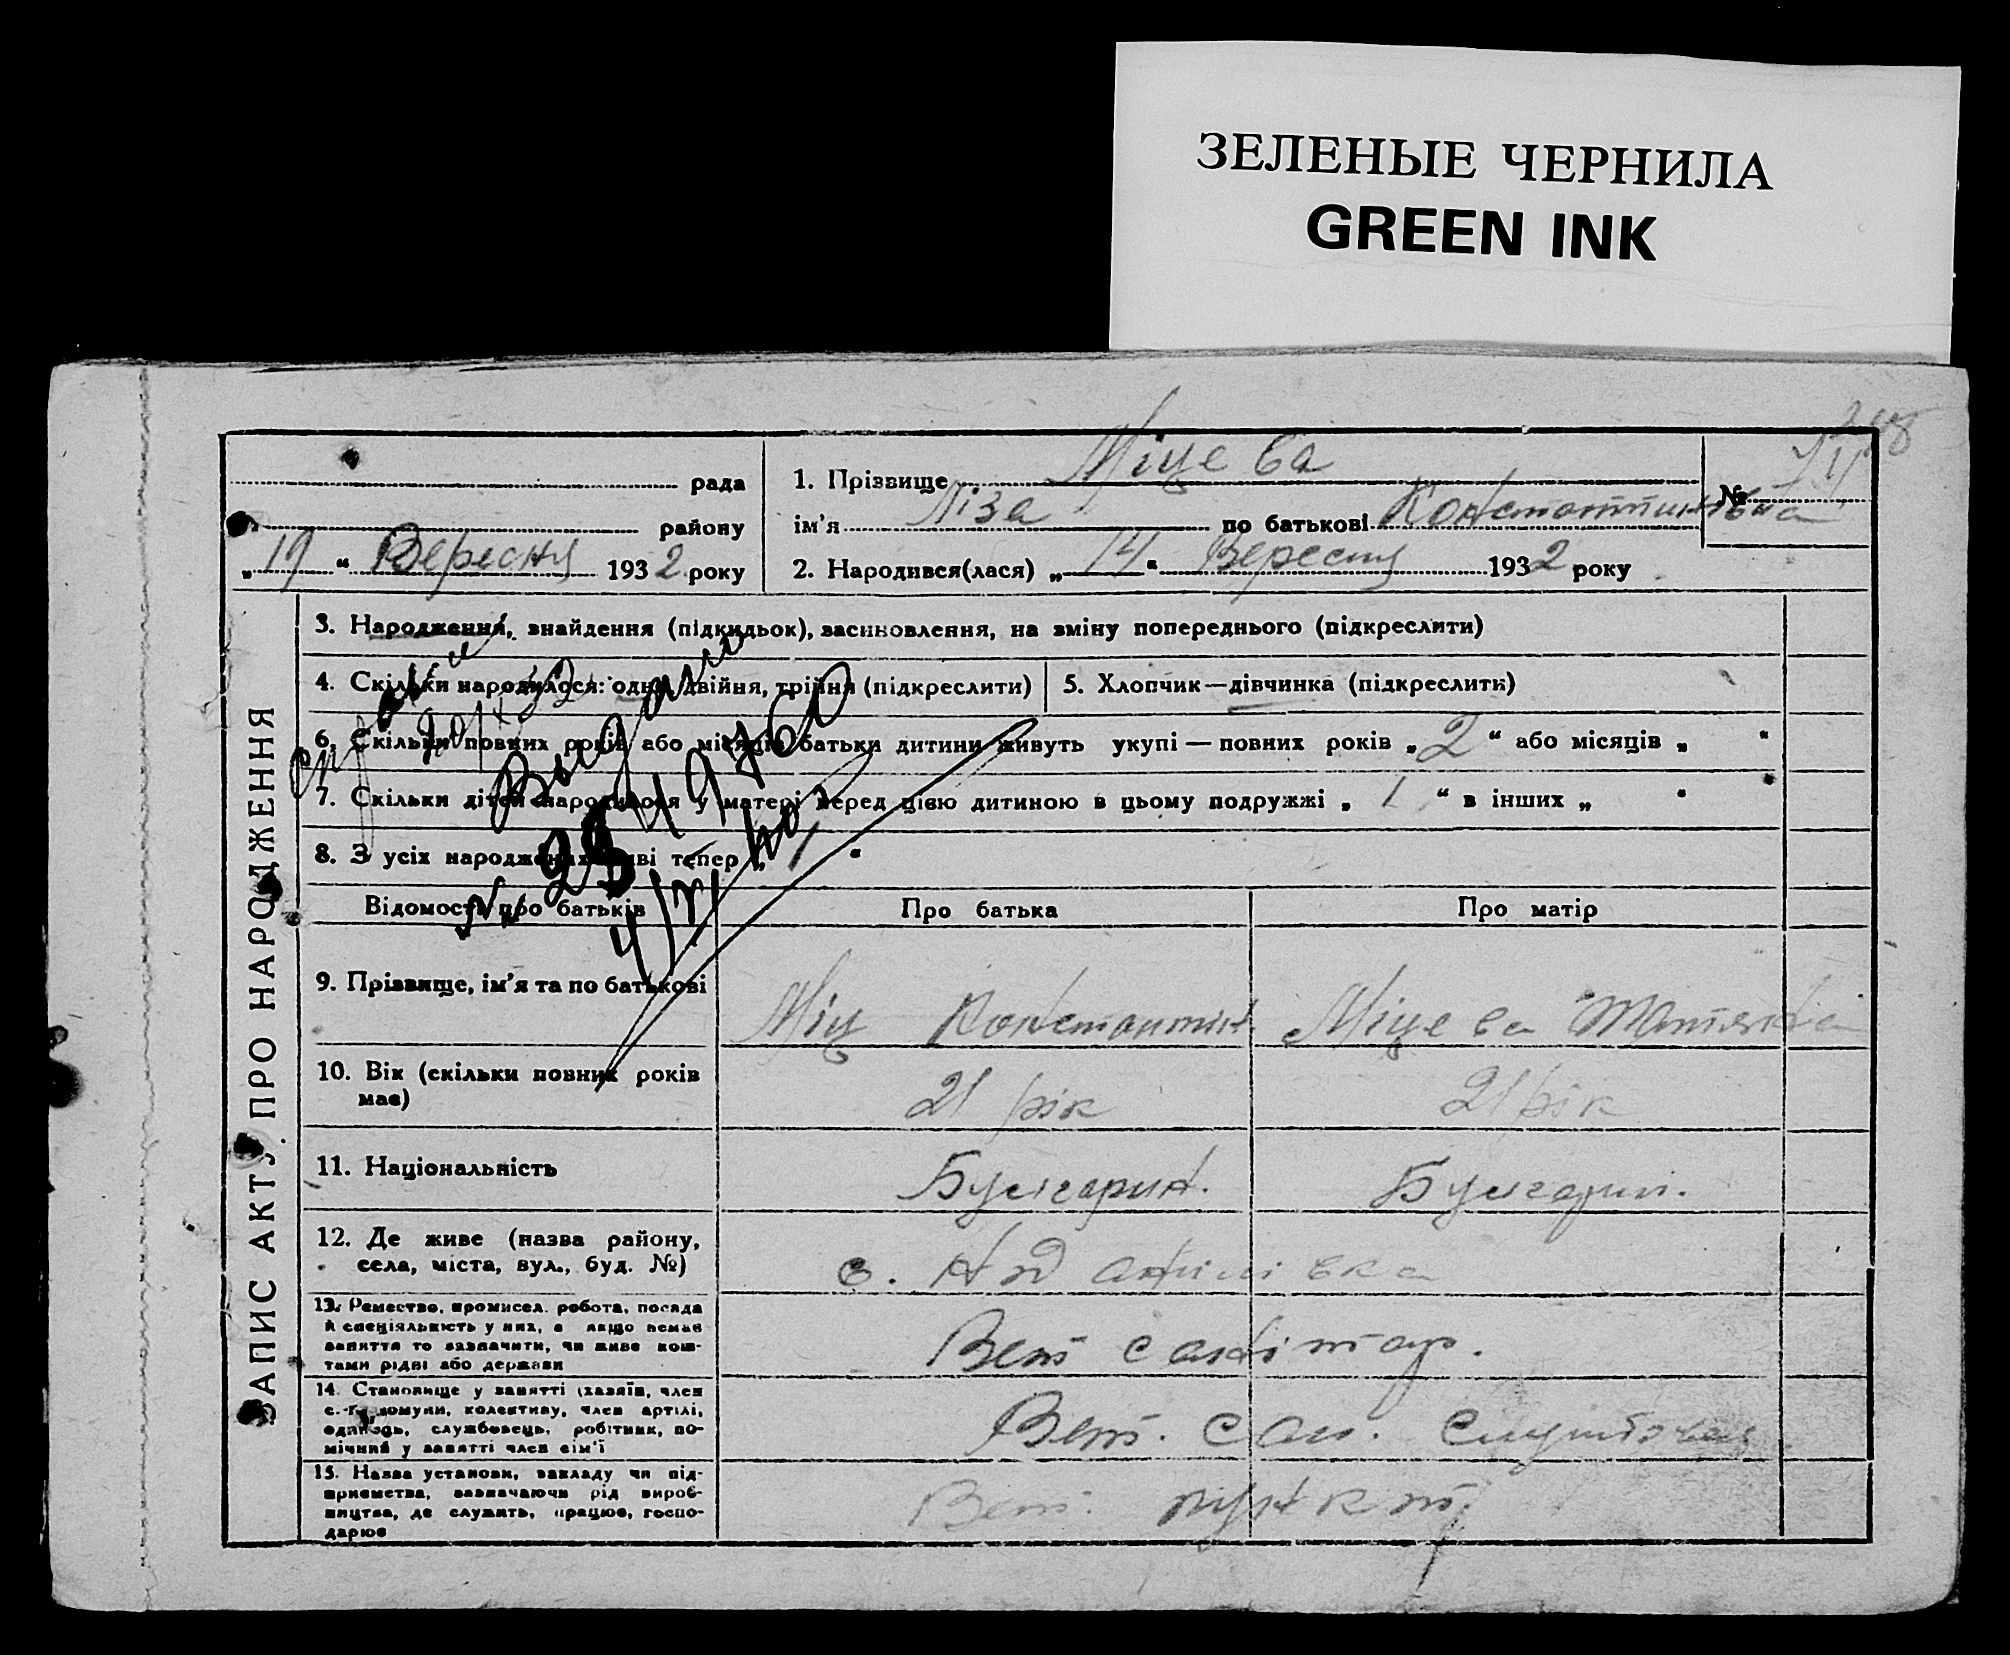 ЗЕЛЕНЫЕ ЧЕРНИЛА
GREEN INK
рада
району
„ 19 “ Вересня 1932 року
1. Прізвище Міцева
ім’я Ліза по батькові Константинівна
№ 74
2. Народився(лася) „ 14 “ Вересня 1932 року
ЗАПИС АКТУ ПРО НАРОДЖЕННЯ
3. Народження, знайдення (підкидьок), засиновлення, на зміну попереднього (підкреслити)
4. Скільки народилося: одна, двійня, трійня (підкреслити)
5. Хлопчик—дівчинка (підкреслити)
6. Скільки повних років або місяців батьки дитини живуть укупі — повних років „ 2 “ або місяців „ “
7. Скільки дітей народилося у матері перед цією дитиною в цьому подружжі „ 1 “ в інших „ “
8. З усіх народжених живі тепер „ 1 “
Выдано
Відомості про батьків
Про батька
Про матір
9. Прізвище, ім’я та по батькові
Міц Константин
Міцева Татяна
10. Вік (скільки повних років має)
21 рік
21 рік
11. Національність
Булгарин.
Булгарин.
12. Де живе (назва району,
села, міста, вул., буд. №)
с.
13. Ремество, промисел, робота, посада
й спеціяльність у них, а якщо немає
заняття то зазначити, чи живе кош-
тами рідні або держави
Вет санітар.
14. Становище у занятті (хазяїн, член
с.-г. комуни, колективу, член артілі,
одинець, службовець, робітник, по-
мічний у занятті член сім’ї
Вет. сан.
15. Назва установи, закладу чи під-
приємства, зазначаючи рід вироб-
ництва, де служить, працює, госпо-
дарює
Вет. пункт.